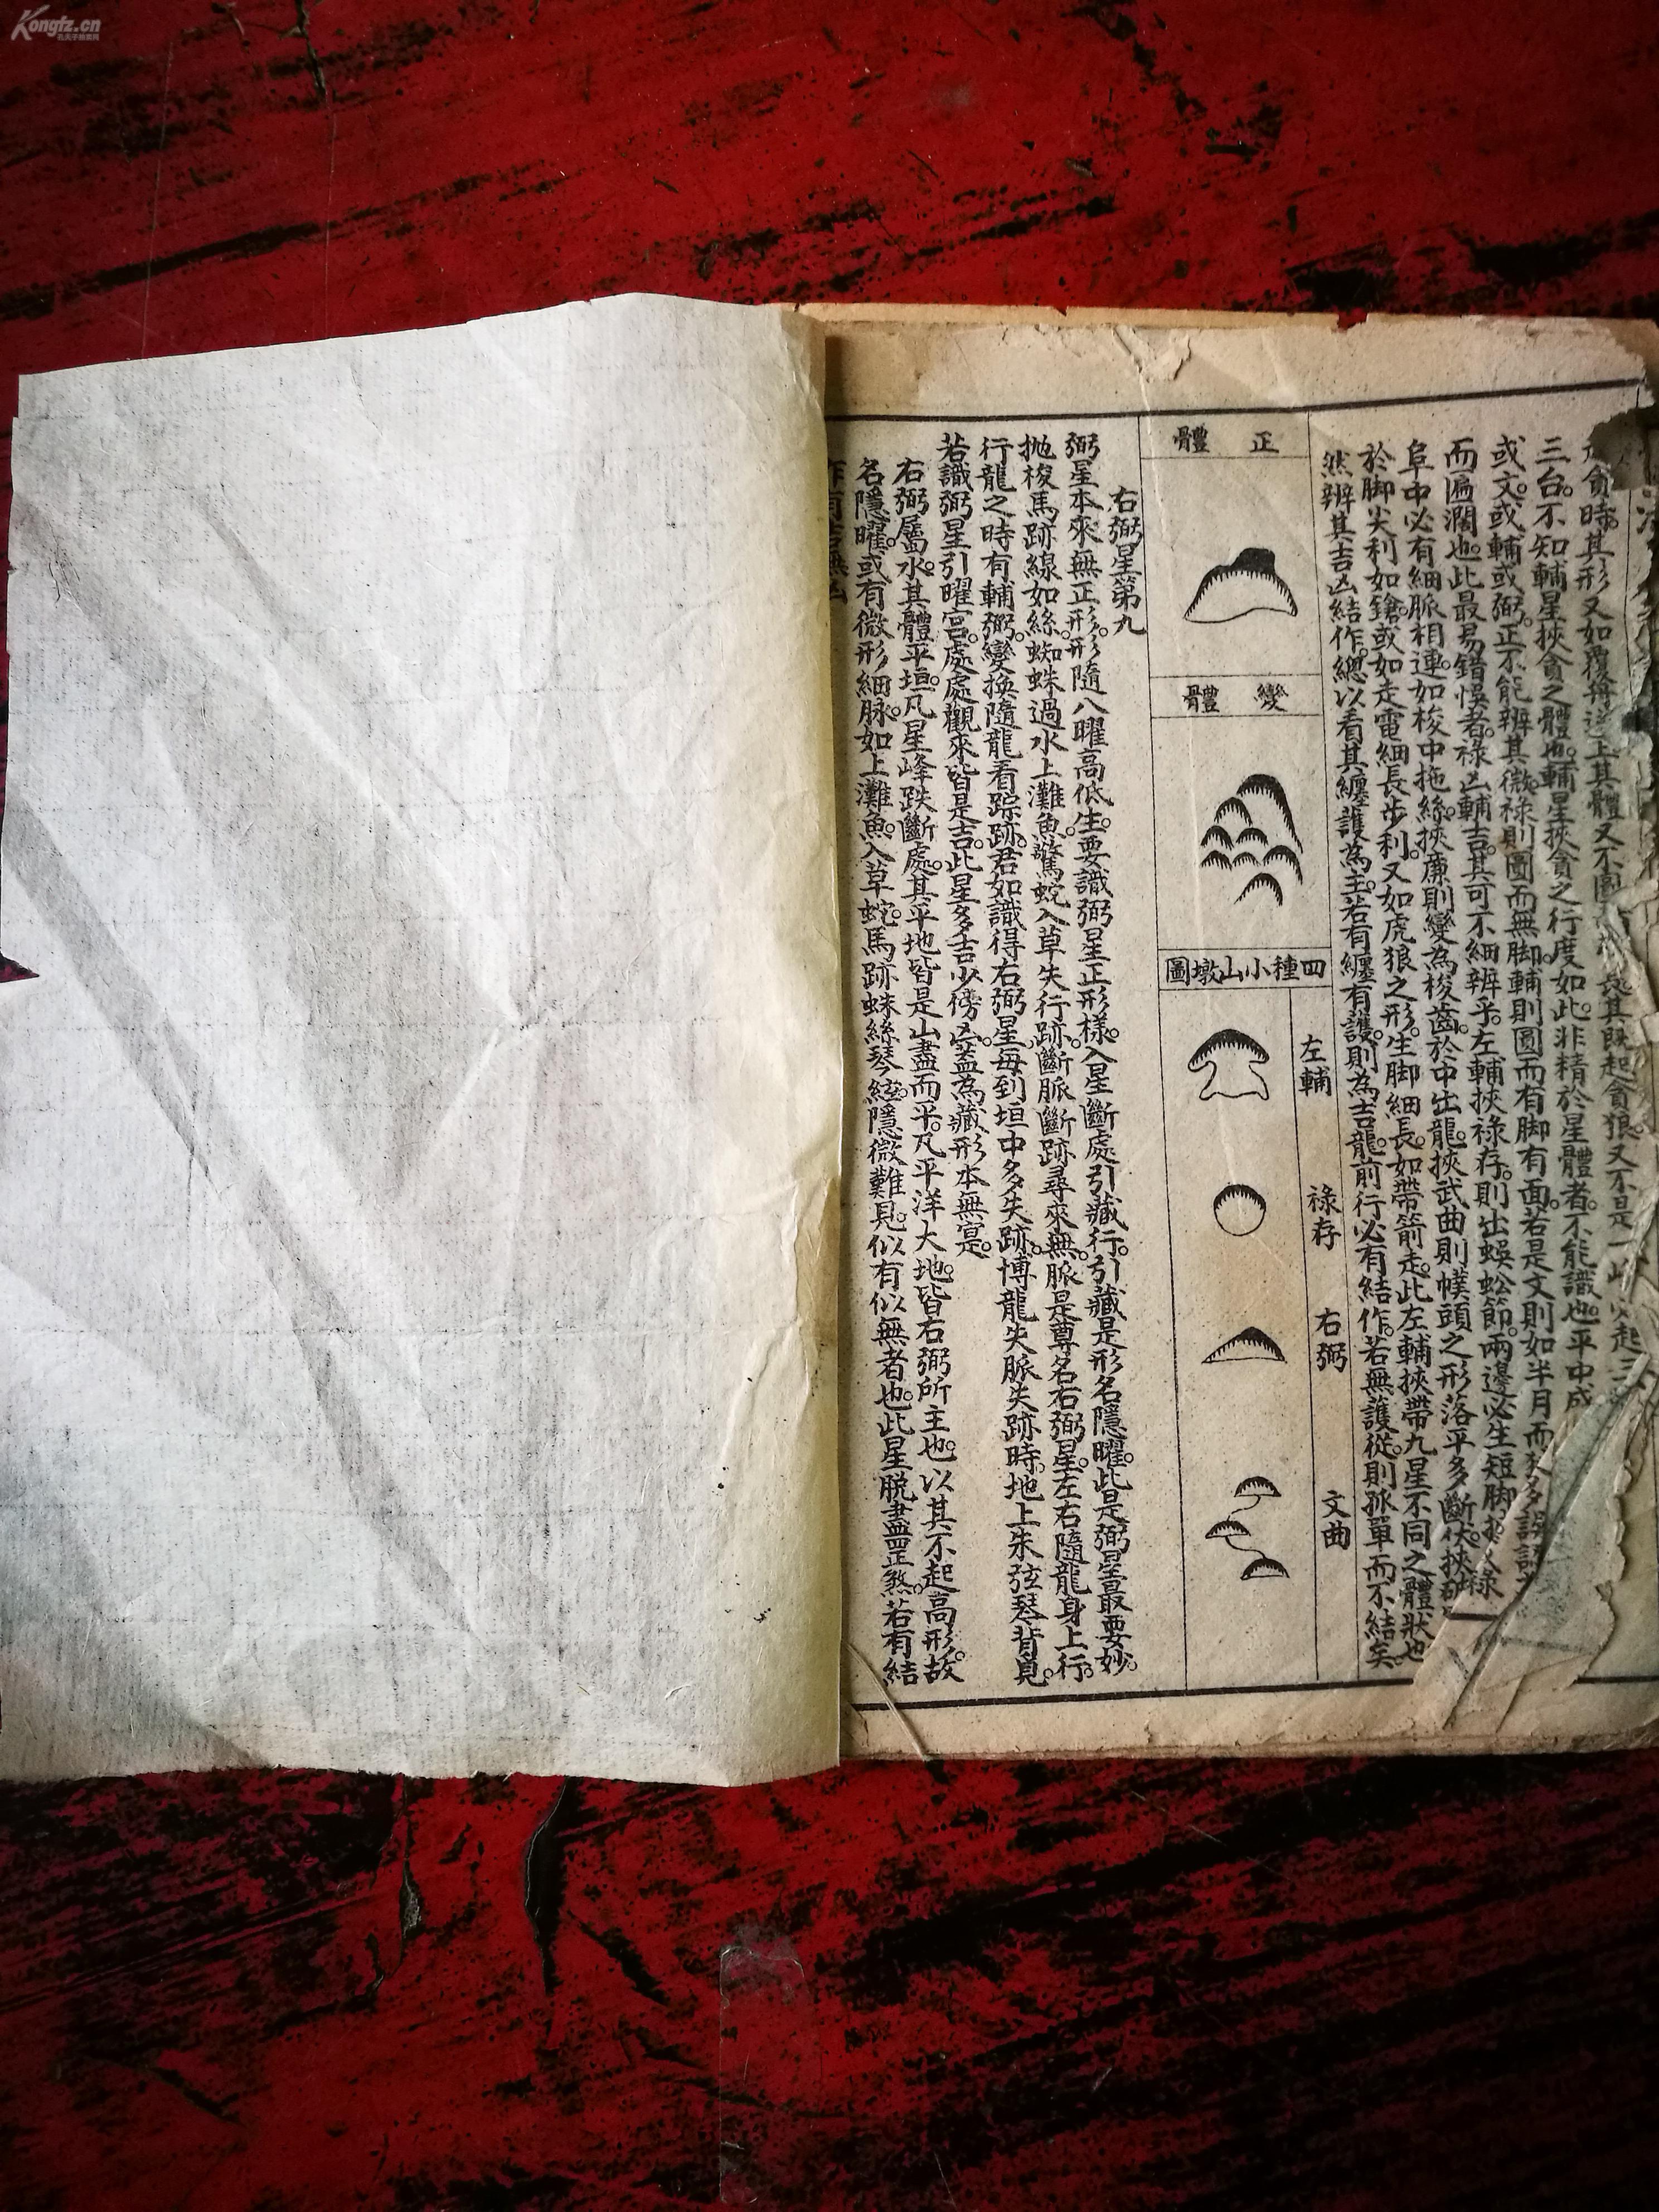 Kongfz.cn
貪時其形又如覆
三台。不知輔星挾貪之體也。輔星挾貪之行度如此。非精於星體者。不能識也。平中成
或文。或輔或弼。正不能辨其微。祿則圓而無脚。輔則圓而有脚有面。若是文則如半月而
而匾濶也。此最易錯悞者。祿凶輔吉。其可不細辨乎。左輔挾祿存。則出蜈蚣節。兩邊必生短脚
阜中必有細脈相連。如梭中拖絲。挾廉則變為梭齒。於中出龍。挾武曲則幞頭之形。落平多斷伏。挾
於脚尖利如鎗。或如走電細長步利。又如虎狼之形。生脚細長。如帶箭走。此左輔挾帶九星不同之體狀也
然辨其吉凶結作。總以看其纏護為主。若有纏有護。則為吉龍。前行必有結作。若無護從。則孤單而不結矣。
正體
變體
四種小山墩圖
左輔
祿存
右弼
文曲
右弼星第九
弼星本來無正形。形隨八曜高低生。要識弼星正形樣。入星斷處引藏行。引藏是形名隱曜。此是弼星最要妙。
抛梭馬跡線如絲。蜘蛛過水上灘魚。驚蛇入草失行跡。斷脈斷跡尋來無。脈是尊名右弼星。左右隨龍身上行。
行龍之時有輔弼。變換隨龍看踪跡。君如識得右弼星。每到垣中多失跡。博龍失脈失跡時。地上朱弦琴背覓。
若識弼星引曜宮。處處觀來皆是吉。此星多吉少傍凶。蓋為藏形本無寔。
右弼屬水。其體平垣。凡星峰跌斷處。其平地皆是山盡而平。凡平洋大地。皆右弼所主也。以其不起高形。故
名隱曜。或有微形細脉。如上灘魚。入草蛇。馬跡蛛絲琴絃。隱微難見。似有似無者也。此星脱盡罡煞。若有結